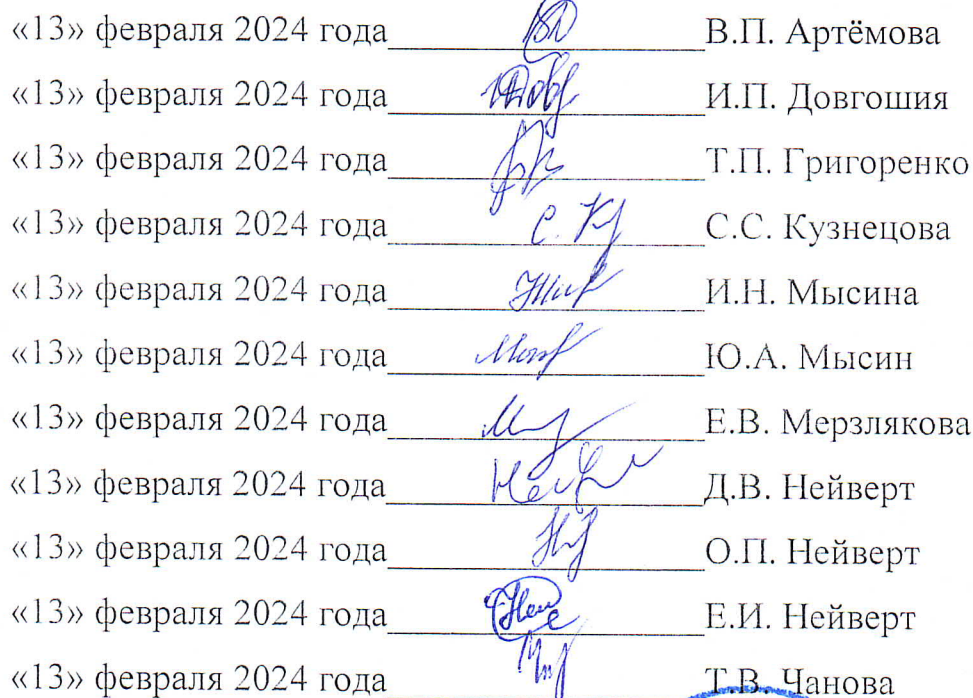 «13» февраля 2024 года В.П. Артёмова
«13» февраля 2024 года И.П. Довгошия
«13» февраля 2024 года Т.П. Григоренко
«13» февраля 2024 года С. К С.С. Кузнецова
«13» февраля 2024 года И.Н. Мысина
«13» февраля 2024 года Ю.А. Мысин
«13» февраля 2024 года Е.В. Мерзлякова
«13» февраля 2024 года Д.В. Нейверт
«13» февраля 2024 года О.П. Нейверт
«13» февраля 2024 года Е.И. Нейверт
«13» февраля 2024 года Т.В. Чанова